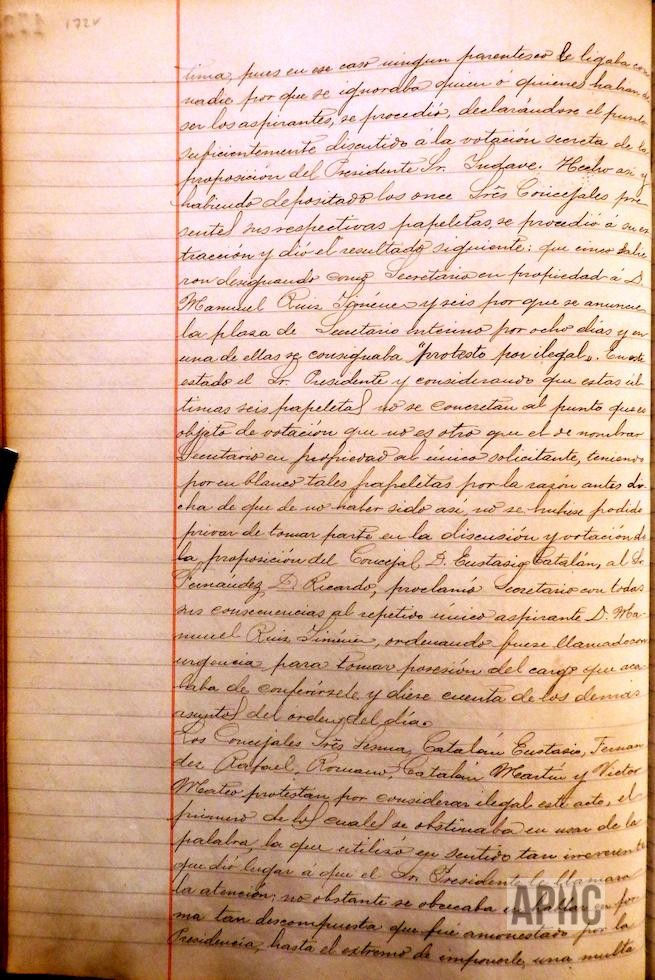 172v
tima, pues en ese caso ningun parentesco le ligaba con
nadie por que se ignoraba quien ó quienes habian de
ser los aspirantes, se procedió, declarándose el punto
suficientemente discutido á la votación secreta de la
proposición del Presidente Sr. Hecho así y
habiendo depositado los once Srês Concejales pre-
sentes sus respectivas papeletas, se procedió á su es-
tracción y dió el resultado siguiente: que cinco salie-
ron designando como Secretario en propiedad á D.
Manuel Ruiz Jiménez y seis por que se anuncie
la plaza de Secretario interino por ocho dias y en
una de ellas se consignaba "protesto por ilegal". En este
estado el Sr. Presidente y considerando que estas úl-
timas seis papeletas no se concretan al punto que es
objeto de votación que no es otro que el de nombrar
Secretario en propiedad al único solicitante, teniendo
por en blanco tales papeletas por la razón antes di-
cha de que de no haber sido así, no se hubiese podido
privar de tomar parte en la discusión y votación de
la proposición del Concejal D. Eustasio Catalán, al Sr.
Fernández, D. Ricardo, proclamó Secretario con todas
sus consecuencias al repetido único aspirante D. Ma-
nuel Ruiz Jiménez, ordenando fuese llamado con
urgencia para tomar posesión del cargo que aca-
baba de conferírsele y diese cuenta de los demás
asuntos del orden del día.
Los Concejales Srês Lesma, Catalán Eustasio, Fernan-
dez Rafael, Romano, Catalán Martín y Victor
Mateo protestan por considerar ilegal este acto, el
primero de los cuales se obstinaba en usar de la
palabra, la que utilizó en sentido tan irreverente
que dió lugar á que el Sr. Presidente le llamara
la atención; no obstante se obcecaba en hablar en for-
ma tan descompuesta que fué amonestado por la
Presidencia, hasta el extremo de imponerle una multa
APHC